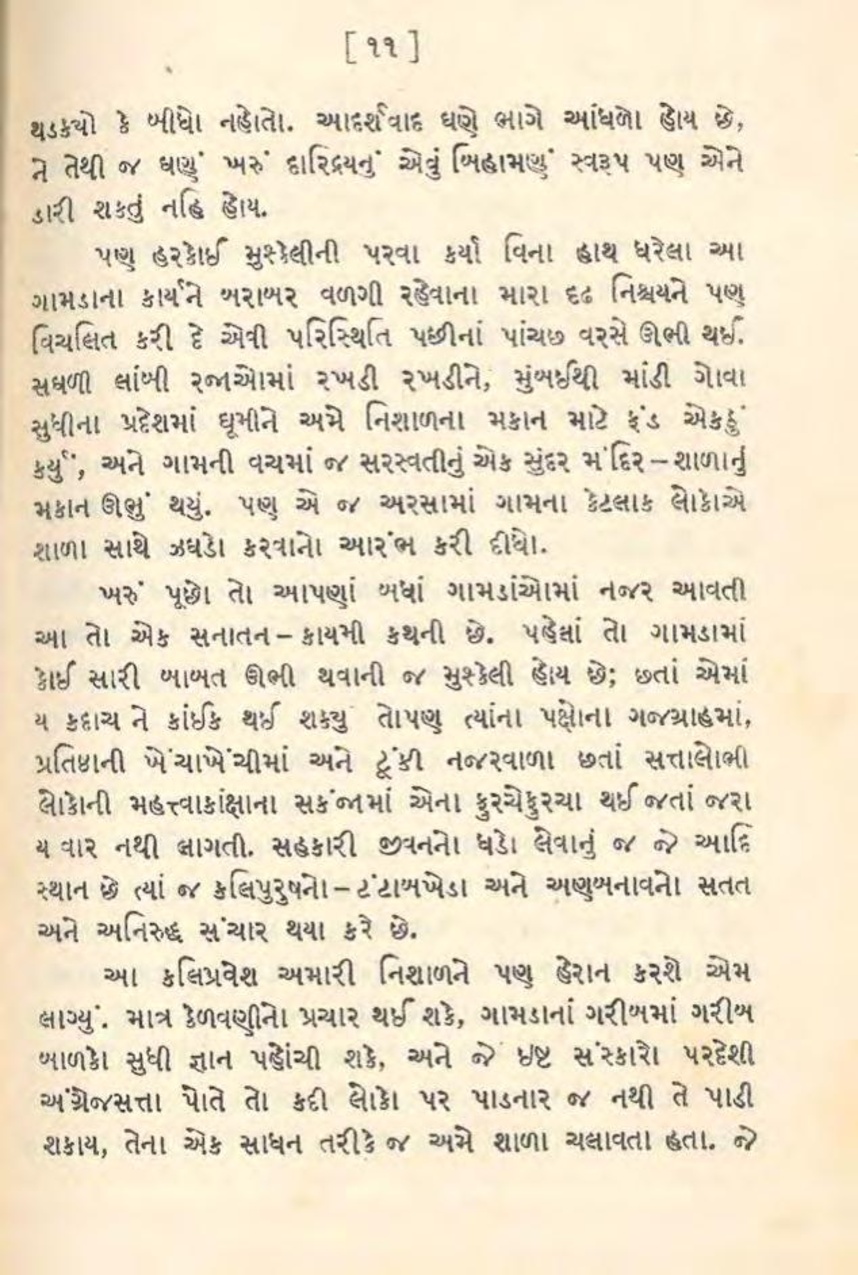 [ ૧૧ ]
થડક્યો કે બીધો નહોતો. આદર્શવાદ ઘણે ભાગે આંધળો હોય છે,
ને તેથી જ ઘણું ખરું દારિદ્રયનું એવું બિહામણું સ્વરૂપ પણ એને
ડારી શકતું નહિ હોય.
પણ હરકોઈ મુશ્કેલીની પરવા કર્યા વિના હાથ ધરેલા આ
ગામડાના કાર્યને બરાબર વળગી રહેવાના મારા દૃઢ નિશ્ચયને પણ
વિચલિત કરી દે એવી પરિસ્થિતિ પછીનાં પાંચછ વરસે ઊભી થઈ.
સઘળી લાંબી રજાઓમાં રખડી રખડીને, મુંબઈથી માંડી ગોવા
સુધીના પ્રદેશમાં ઘૂમીને અમે નિશાળના મકાન માટે ફંડ એકઠું
કર્યું, અને ગામની વચમાં જ સરસ્વતીનું એક સુંદર મંદિર – શાળાનું
મકાન ઊભું થયું. પણ એ જ અરસામાં ગામના કેટલાક લોકોએ
શાળા સાથે ઝઘડો કરવાનો આરંભ કરી દીધો.
ખરું પૂછો તો આપણાં બધાં ગામડાંઓમાં નજર આવતી
આ તો એક સનાતન – કાયમી કથની છે. પહેલાં તો ગામડામાં
કોઈ સારી બાબત ઊભી થવાની જ મુશ્કેલી હોય છે; છતાં એમાં
ય કદાચ ને કાંઈક થઈ શક્યુ તોપણ ત્યાંના પક્ષોના ગજગ્રાહમાં,
પ્રતિષ્ઠાની ખેંચાખેંચીમાં અને ટૂંકી નજરવાળા છતાં સત્તાલોભી
લોકોની મહત્ત્વાકાંક્ષાના સકંજામાં એના કુરચેકુરચા થઈ જતાં જરા
ય વાર નથી લાગતી. સહકારી જીવનનો ધડો લેવાનું જ જે આદિ
સ્થાન છે ત્યાં જ કલિપુરુષનો – ટંટાબખેડા અને અણબનાવનો સતત
અને અનિરુદ્ધ સંચાર થયા કરે છે.
આ કલિપ્રવેશ અમારી નિશાળને પણ હેરાન કરશે એમ
લાગ્યું. માત્ર કેળવણીનો પ્રચાર થઈ શકે, ગામડાનાં ગરીબમાં ગરીબ
બાળકો સુધી જ્ઞાન પહોંચી શકે, અને જે ઇષ્ટ સંસ્કારો પરદેશી
અંગ્રેજસત્તા પોતે તો કદી લોકો પર પાડનાર જ નથી તે પાડી
શકાય, તેના એક સાધન તરીકે જ અમે શાળા ચલાવતા હતા. જે